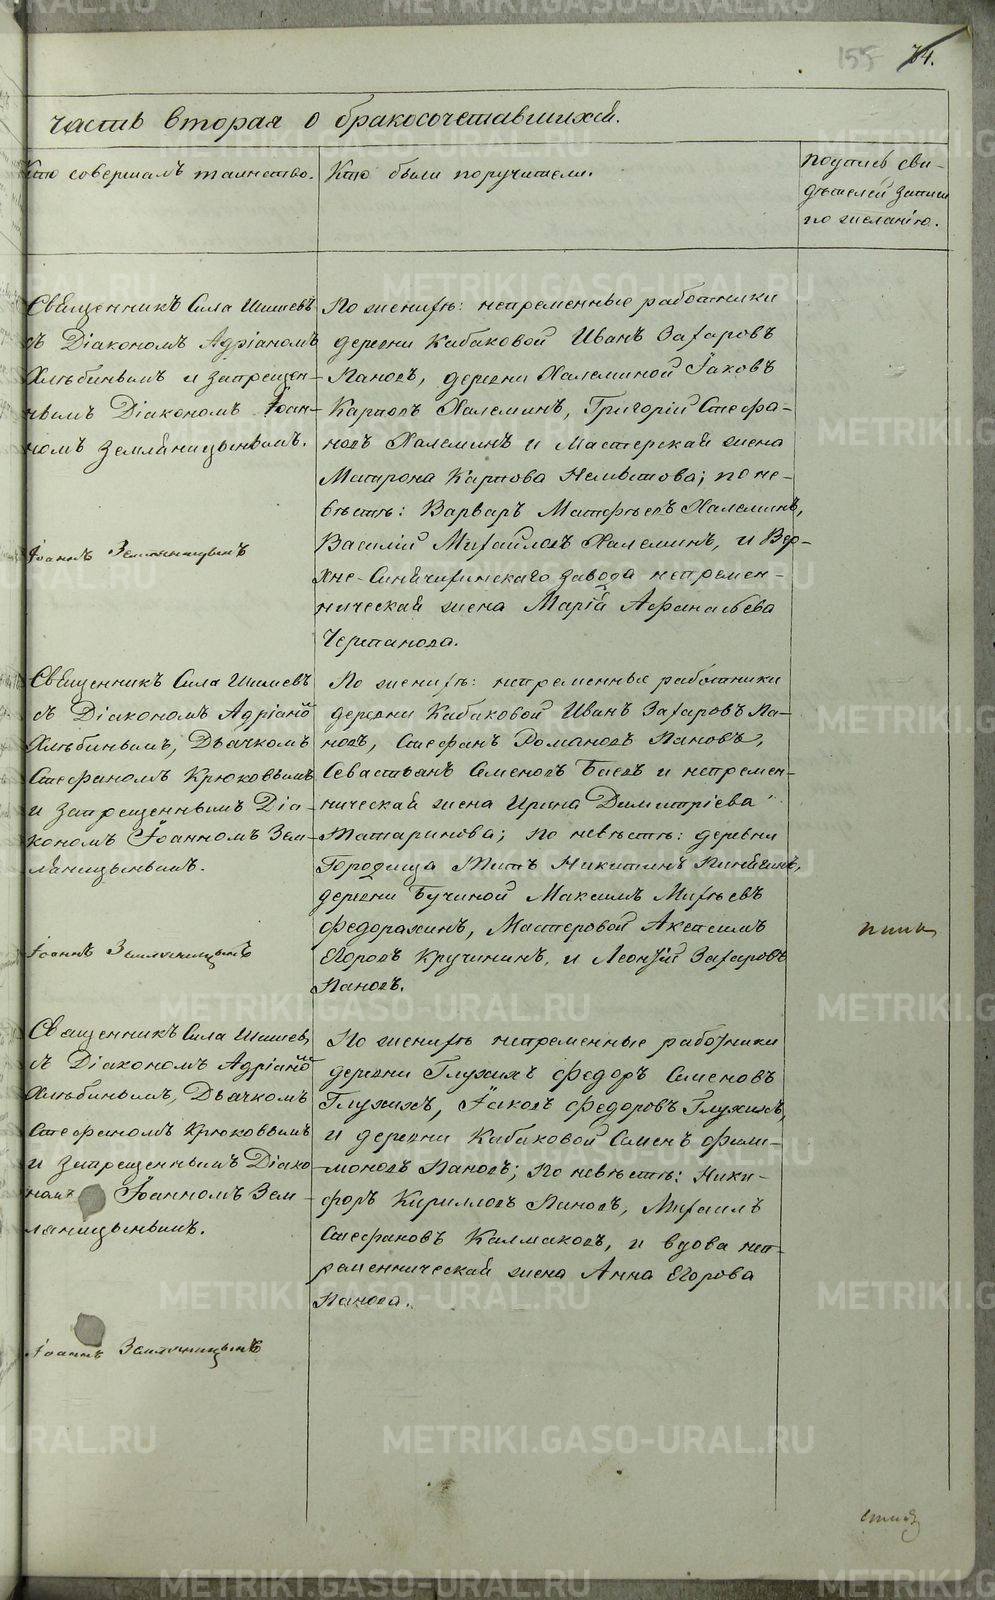 155 74.
часть вторая о бракосочетавшихся.
Кто совершалъ таинство.
Кто были поручители.
подпись сви-
дѣтелей записи
по желанію.
Священникъ Сила Шишевъ
съ Діакономъ Адріаномъ
Хлѣбинымъ и запрещен-
нымъ Діакономъ Іоан-
номъ Земляницынымъ.
Іоаннъ Земляницынъ
По женихѣ: непременные работники
деревни Кабаковой Иванъ Захаровъ
Пановъ, деревни Халеминой Іаковъ
Карповъ Халеминъ, Григорій Стефа-
новъ Халеминъ и Мастерская жена
Матрона Карпова; по не-
вѣстѣ: Варваръ Матфѣевъ Халеминъ,
Василій Михайловъ Халеминъ, и Вер-
хне-Синячихинскаго завода непремен-
ническая жена Марія Афанасьева
Черпанова.
Священникъ Сила Шишевъ
съ Діакономъ Адріано
Хлѣбинымъ, Дьячкомъ
Стефаномъ Крюковымъ
и запрещеннымъ Діа-
кономъ Іоанномъ Зем-
ляницынымъ.
Іоаннъ Земляницынъ
По женихѣ: непременные работники
деревни Кабаковой Иванъ Захаровъ Па-
новъ, Стефанъ Романовъ Пановъ,
Севастьянъ Семеновъ Баевъ и непремен-
ническая жена Ирина Димитріева
Татаринова; по невѣстѣ: деревни
Городища Титъ Никитинъ,
деревни Бучиной Максимъ
Федорахинъ, Мастеровой
Егоровъ Кручининъ, и Леонтій Захаровъ
Пановъ.
Священникъ Сила Шишев,
съ Діакономъ Адріано
Хлѣбинымъ, Дьячкомъ
Стефаномъ Крюковымъ
и запрещеннымъ Діако
номъ Іоанномъ Зем-
ляницынымъ.
Іоаннъ Земляницынъ
По женихѣ непременные работники
деревни Глухихъ Федоръ Семеновъ
Глухихъ, Іаковъ Федоровъ Глухихъ,
и деревни Кабаковой Семенъ Фили-
моновъ Пановъ; по невѣстѣ: Ники-
форъ Кирилловъ Пановъ, Михаилъ
Стефановъ Калмаковъ, и вдова неп-
ременническая жена Анна Егорова
Панова.
METRIKI.GASO-URAL.RU